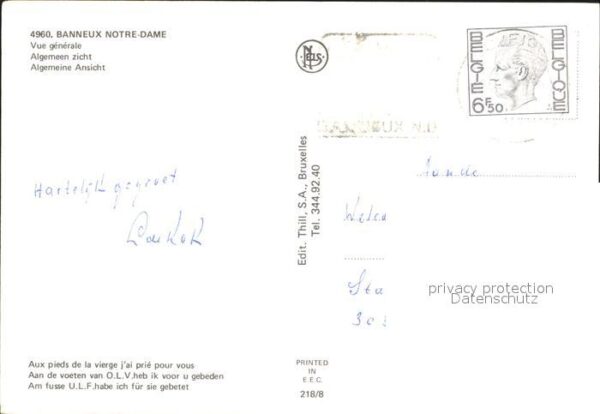 4960. BANNEUX NOTRE-DAME
Vue générale
Algemeen zicht
Algemeine Ansicht
NELS
BELGIE
BELGIQUE
6F50
BANNEUX N.D
Edit. Thill, S.A., Bruxelles
Tel. 344.92.40
Hartelijk gegroet
Sta
privacy protection
Datenschutz
Aux pieds de la vierge j'ai prié pour vous
Aan de voeten van O.L.V.heb ik voor u gebeden
Am fusse U.L.F.habe ich für sie gebetet
PRINTED
IN
E.E.C.
218/8